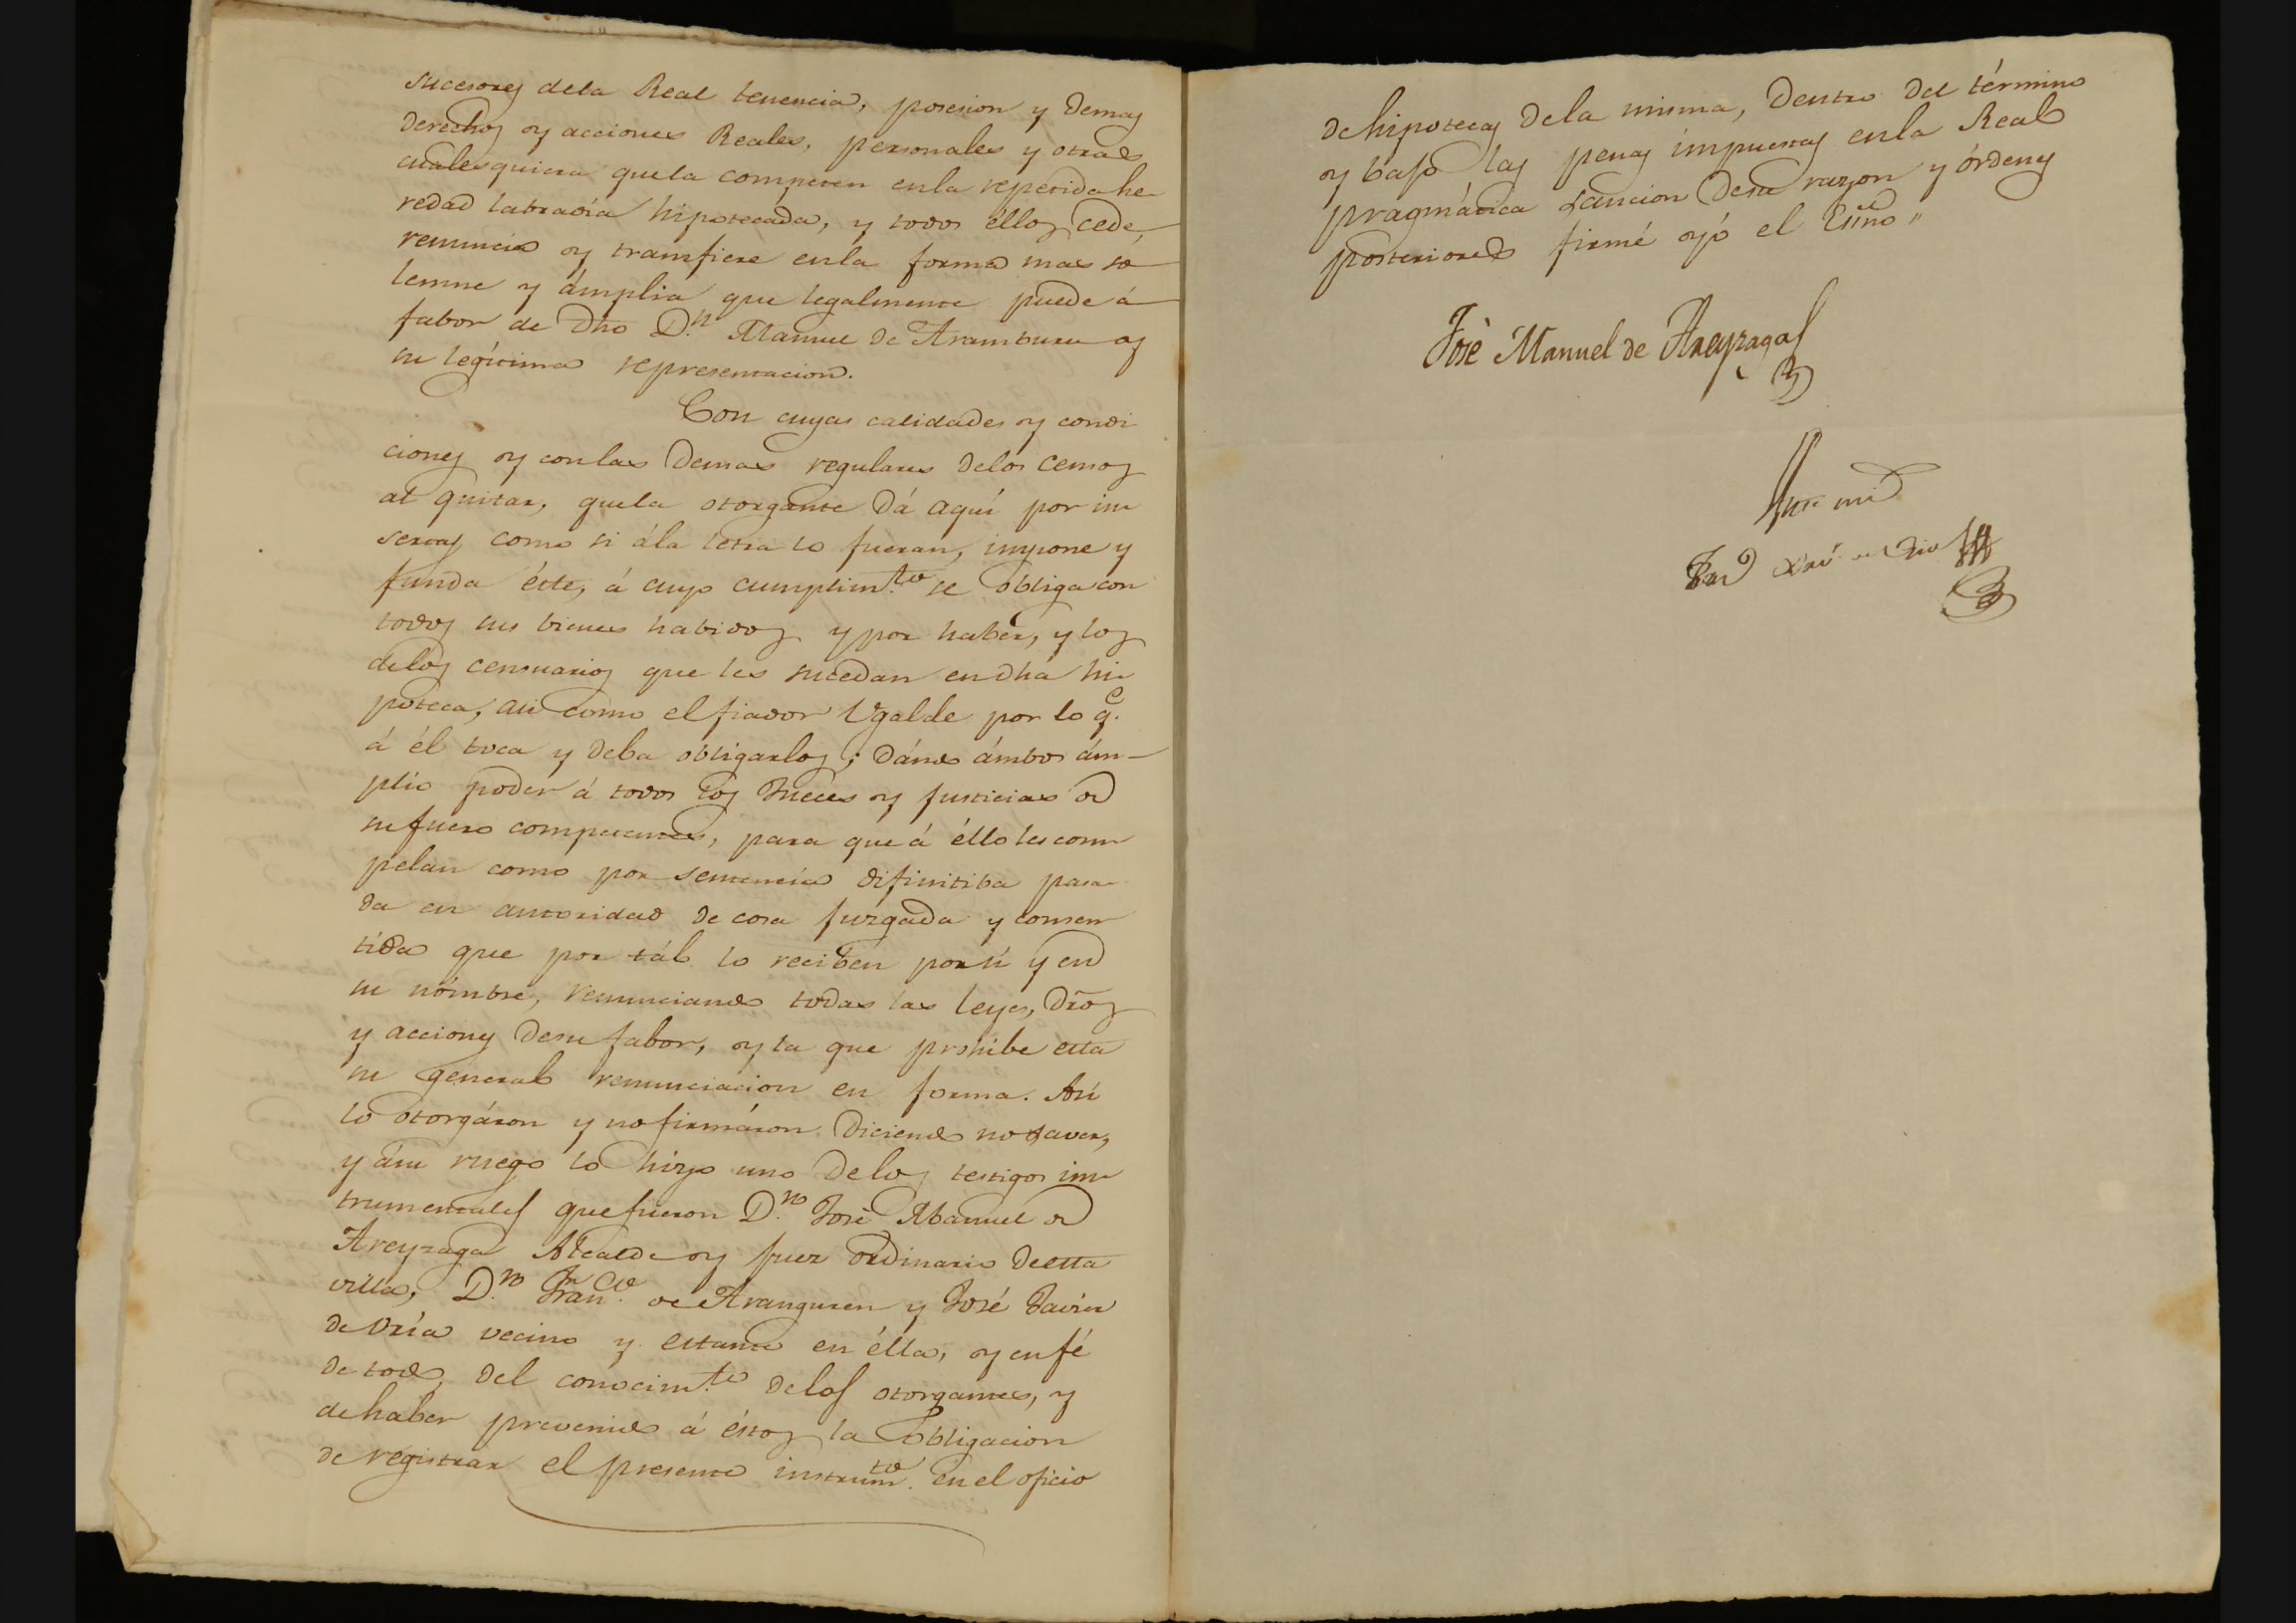 sucesores dela Real tenencia, posesion y demas
derechos y acciones Reales, personales y otras
cualesquiera quela competen enla repetida he-
redad labradía hipotecada, y todos éllos cede,
renuncia y transfiere enla forma mas so-
lemne y ámplia que legalmente puede á
fabor de dho D.n Manuel de Aramburu y
su legítima representacion.
Con cuyas calidades y condi
ciones y conlas demas regulares delos censos
al quitar, quela otorgante dá aquí por in-
sertas como si ála letra lo fueran, impone y
funda éste, á cuyo cumplim.to se obliga con
todos sus bienes habidos y por haber, y los
delos censuarios que les sucedan en dha hi-
poteca, asi como el fiador Ugalde por lo q.e
á él toca y deba obligarlos; dando ámbos ám-
plio poder á todos los Jueces y Justicias de
su fuero competentes, para que á éllo les com-
pelan como por sentencia difinitiba pasa-
da en autoridad de cosa juzgada y consen-
tida que por tál lo reciben porsí y en
su nombre, renunciando todas las leyes, dros
y acciones desu fabor, y la que prohibe esta
su general renunciacion en forma. Así
lo otorgáron y nofirmáron diciendo no saver,
y ásu ruego lo hizo uno delos testigos ins-
trumentales quefueron D.n José Manuel de
Areyzaga Alcalde y Juez ordinario deesta
villa, D.n Fran.co de Aranguren y José Javier
de Uría vecino y estante en élla, y enfé
de todo, del conocim.to delos otorgantes, y
dehaber prevenido á éstos la obligacion
de registrar el presente instrum.to en el oficio
dehipotecas dela misma, dentro del término
y bajo las penas impuestas enla Real
pragmática sancion desu razon y órdenes
posteriores firmé yó el Esno"
José Manuel de Areyzaga
Ante mi